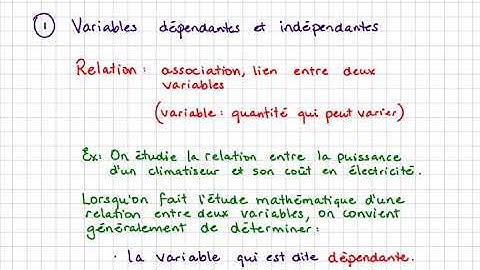 1 Variables dépendantes et indépendantes
Relation : association, lien entre deux
variables
(variable : quantité qui peut varier)
Ex: On étudie la relation entre la puissance
d'un climatiseur et son coût en électricité.
Lorsqu'on fait l'étude mathématique d'une
relation entre deux variables, on convient
généralement de déterminer:
• la variable qui est dite dépendante.